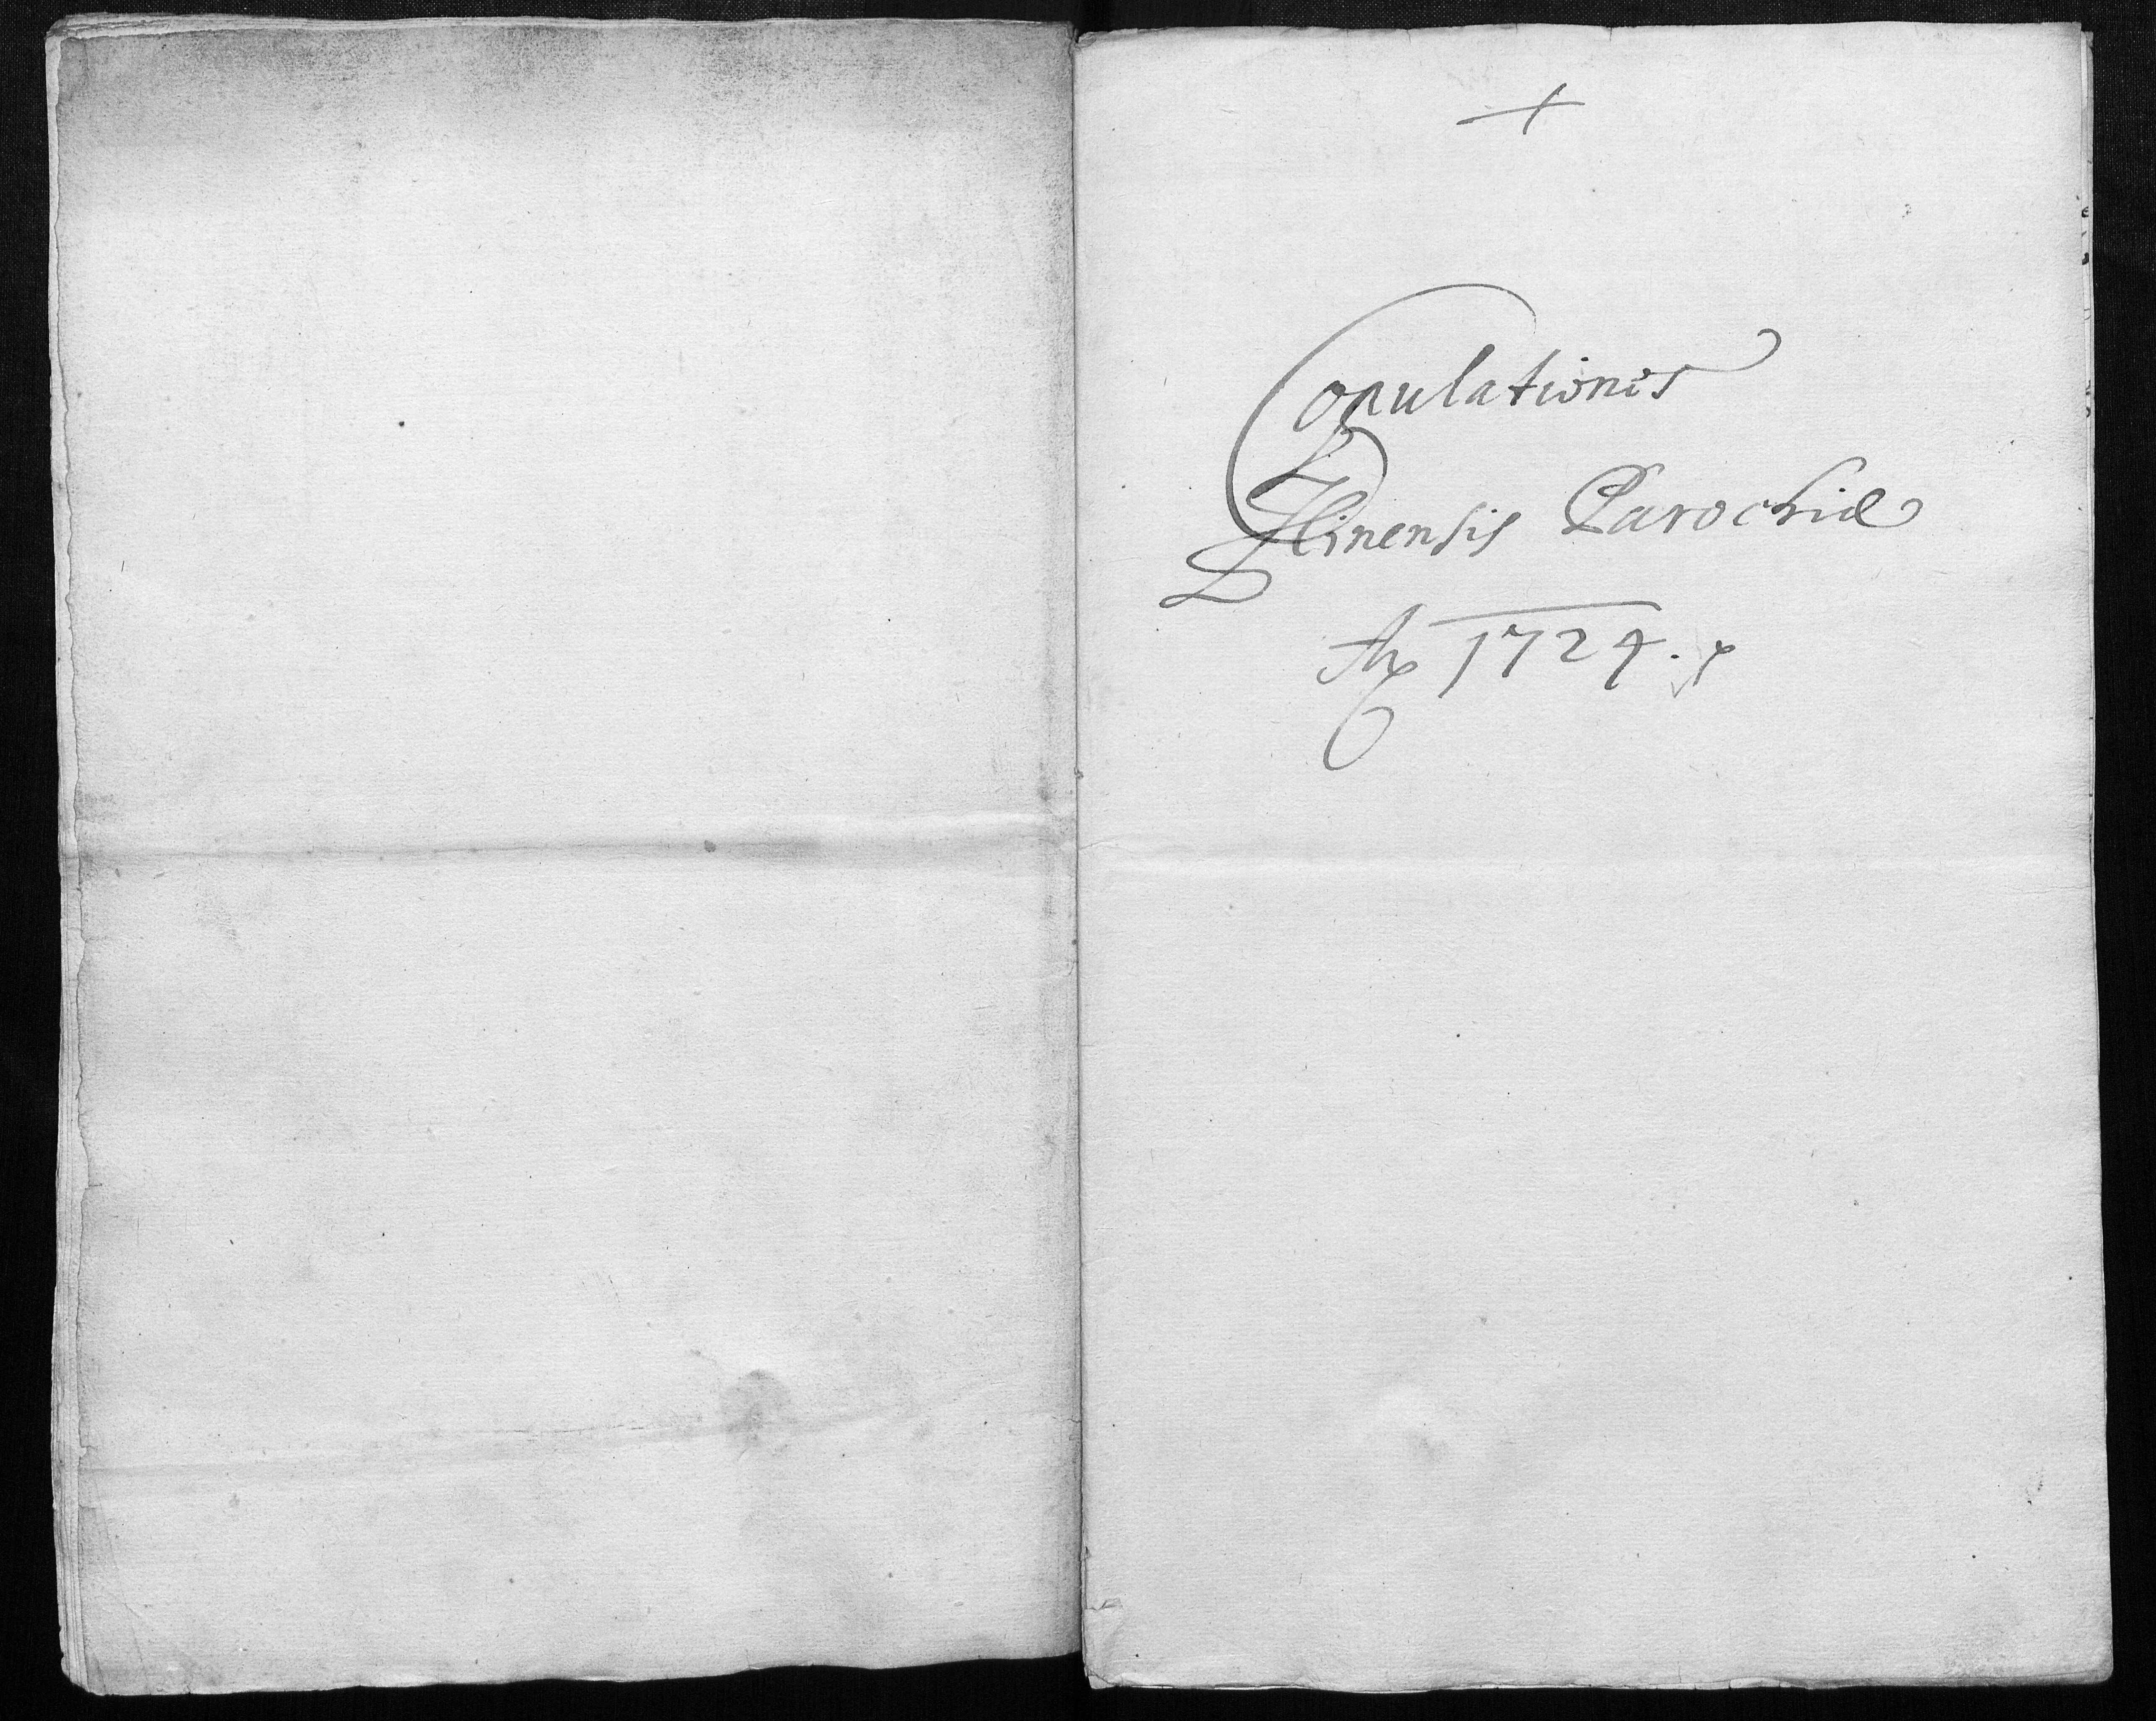 +
Copulationes
Zlinensis Parochiæ
Ao 1724.